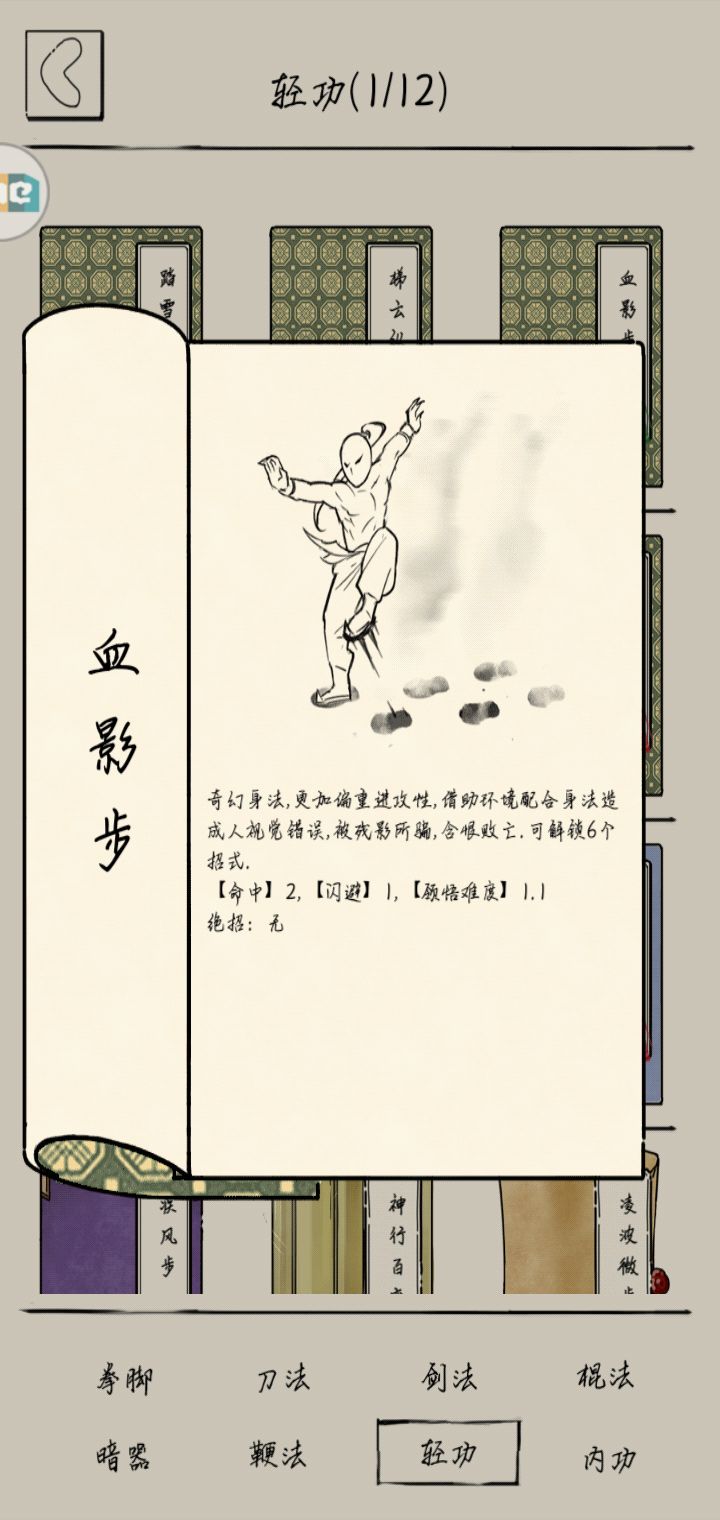 轻功(1/12)
踏雪
梯云纵
血影步
血影步
奇幻身法,更加偏重进攻性,借助环境配合身法造
成人视觉错误,被残影所骗,含恨败亡.可解锁6个
招式.
【命中】2,【闪避】1,【领悟难度】1.1
绝招：无
疾风步
神行百
凌波微步
拳脚 刀法 剑法 棍法
暗器 鞭法 轻功 内功